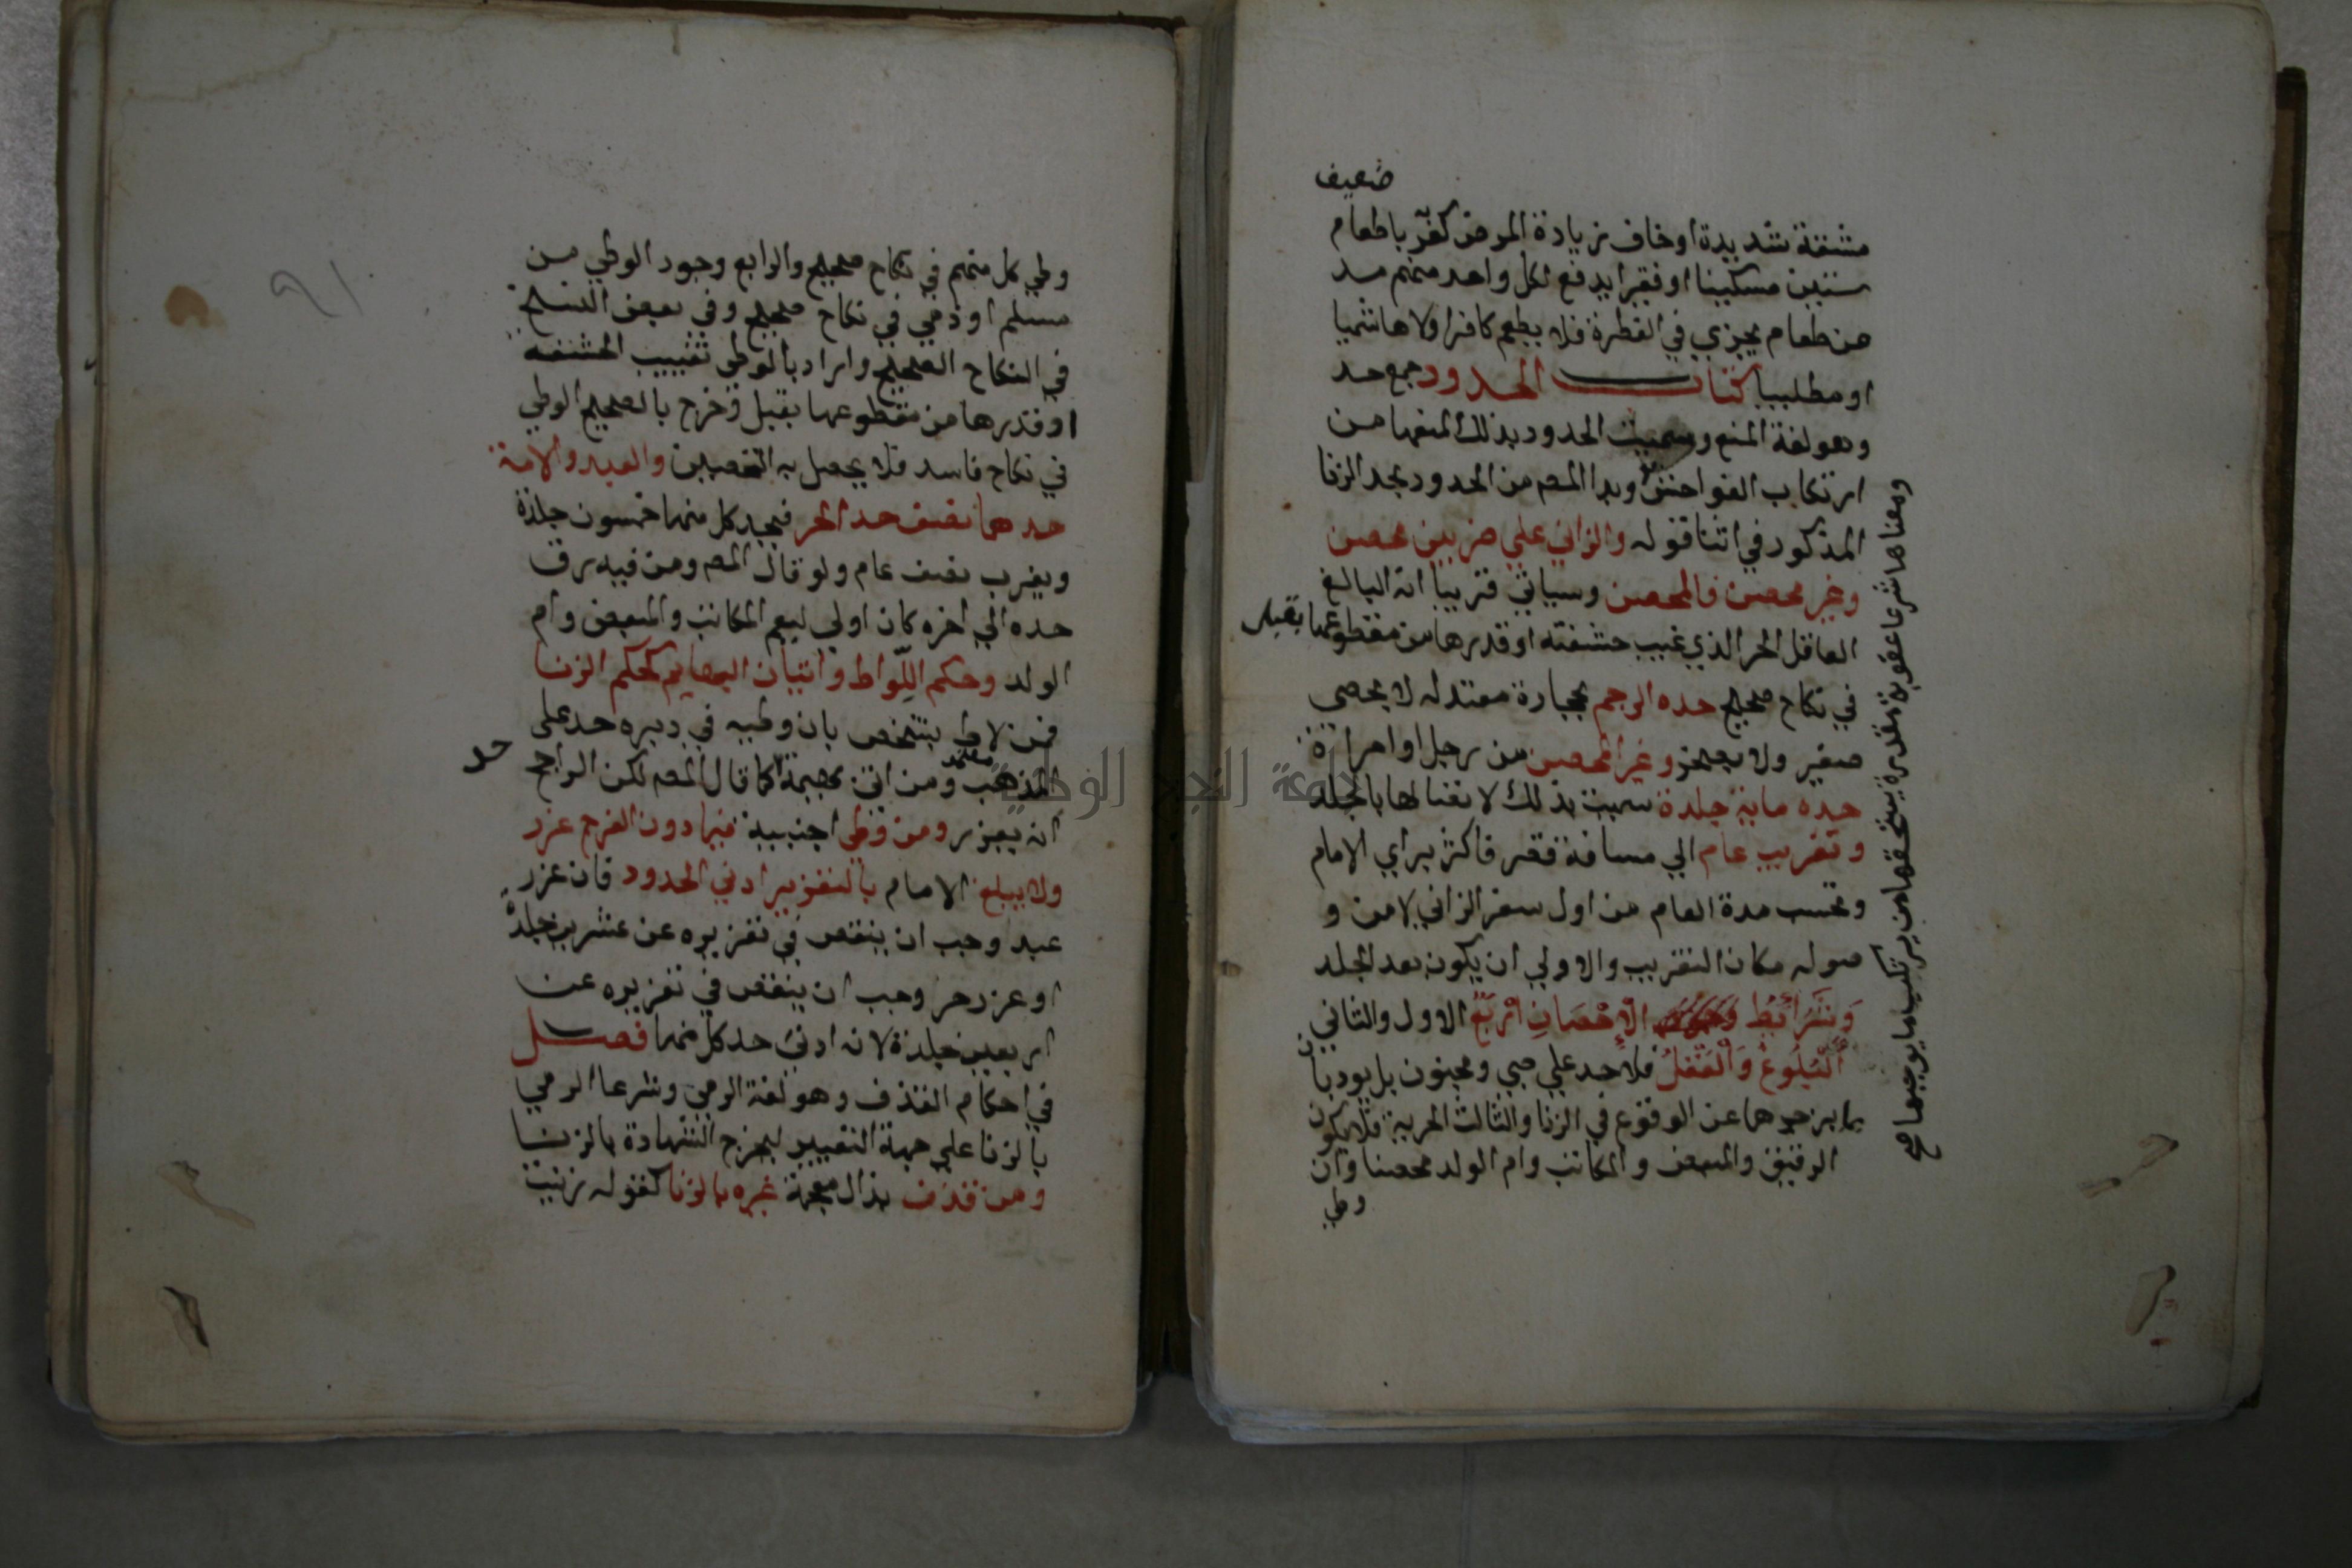 ضعيف
مشقة شديدة او خاف زيادة المرض كفر باطعام
ستين مسكينا او فقيرا يدفع لكل واحد منهم مد
من طعام يجزي في الفطرة فلا يطعم كافرا ولا هاشميا
او مطلبيا كتاب الحدود جمع حد
وهو لغة المنع وسميت الحدود بذلك لمنعها من
ارتكاب الفواحش وبدا المص من الحدود بحد الزنا
المذكور في اثنا قوله والزاني علي ضربين محصن
وغير محصن فالمحصن وسياتي قريبا انه البالغ
العاقل الحر الذي غيب حشفته او قدرها من مقطوعها بقبل
في نكاح صحيح حده الرجم بحجارة معتدله لا بحصي
صغير ولا بصخر وغير المحصن من رجل او امراة
حده ماية جلدة سميت بذلك لاتصالها بالجلد
وتغريب عام الي مسافة قصر فاكثر براي الامام
وتحسب مدة العام من اول سفر الزاني لا من و
صوله مكان التغريب والاولي ان يكون بعد الجلد
وَشَرَائِطُ الاِحْصَانِ اَرْبَعٌ الاول والثاني
اَلْبُلُوغُ وَالْعَقْلُ فلا حد علي صبي ومجنون بل يودبان
بما يزجرهما عن الوقوع في الزنا والثالث الحرية فلا يكون
الرقيق والمبعض والمكاتب وام الولد محصنا وان
وطي
ومعناها شرعا عقوبة مقدرة يستحقها من يرتكب ما يوجبها صح
٩١
وطي كل منهم في نكاح صحيح والرابع وجود الوطي من
مسلم او ذمي في نكاح صحيح وفي بعض النسخ
في النكاح الصحيح واراد بالوطي تغييب الحشفه
او قدرها من مقطوعها بقبل وخرج بالصحيح الوطي
في نكاح فاسد فلا يحصل به التحصين والعبد والامة
حدهما نصف حد الحر فيجد كل منها خمسون جلدة
ويغرب نصف عام ولو قال المص ومن فيه رق
حده الي اخره كان اولي ليعم المكاتب والمبعض وام
الولد وحكم اللِّواط واتيان البهايم كحكم الزنا
فمن لاط بشخص بان وطيه في دبره حد علي
المذهب معتمد ومن اتي بهيمة حد كما قال المص لكن الراجح
ان يعزر ومن وطي اجنبية فيما دون الفرج عزر
ولا يبلغ الامام بالتعزير ادني الحدود فان عزر
عبد وجب ان ينقص في تعزيره عن عشرين جلدة
او عزر حر وجب ان ينقص في تعزيره عن
اربعين جلدة لانه ادني حد كل منها فصل
في احكام القذف وهو لغة الرمي وشرعا الرمي
بالزنا علي جهة التعيير ليخرج الشهادة بالزنا
ومن قذف بذال معجمة غيره بالزنا كقوله زنيت
جامعة النجاح الوطنية